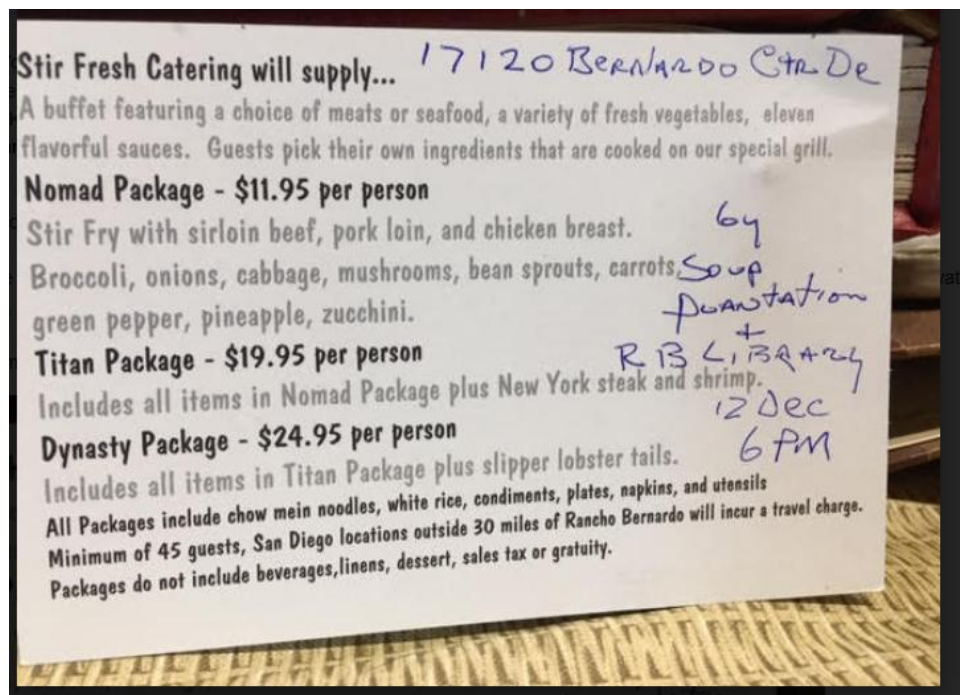 Stir Fresh Catering will supply... 17120 BERNARDO CTR DR
A buffet featuring a choice of meats or seafood, a variety of fresh vegetables, eleven
flavorful sauces. Guests pick their own ingredients that are cooked on our special grill.
Nomad Package - $11.95 per person
Stir Fry with sirloin beef, pork loin, and chicken breast.
Broccoli, onions, cabbage, mushrooms, bean sprouts, carrots,
green pepper, pineapple, zucchini.
Titan Package - $19.95 per person
Includes all items in Nomad Package plus New York steak and shrimp.
Dynasty Package - $24.95 per person
Includes all items in Titan Package plus slipper lobster tails.
All Packages include chow mein noodles, white rice, condiments, plates, napkins, and utensils
Minimum of 45 guests, San Diego locations outside 30 miles of Rancho Bernardo will incur a travel charge.
Packages do not include beverages,linens, dessert, sales tax or gratuity.
by
Soup
PLANtATION
+
RB LIBRARY
12 Dec
6 PM